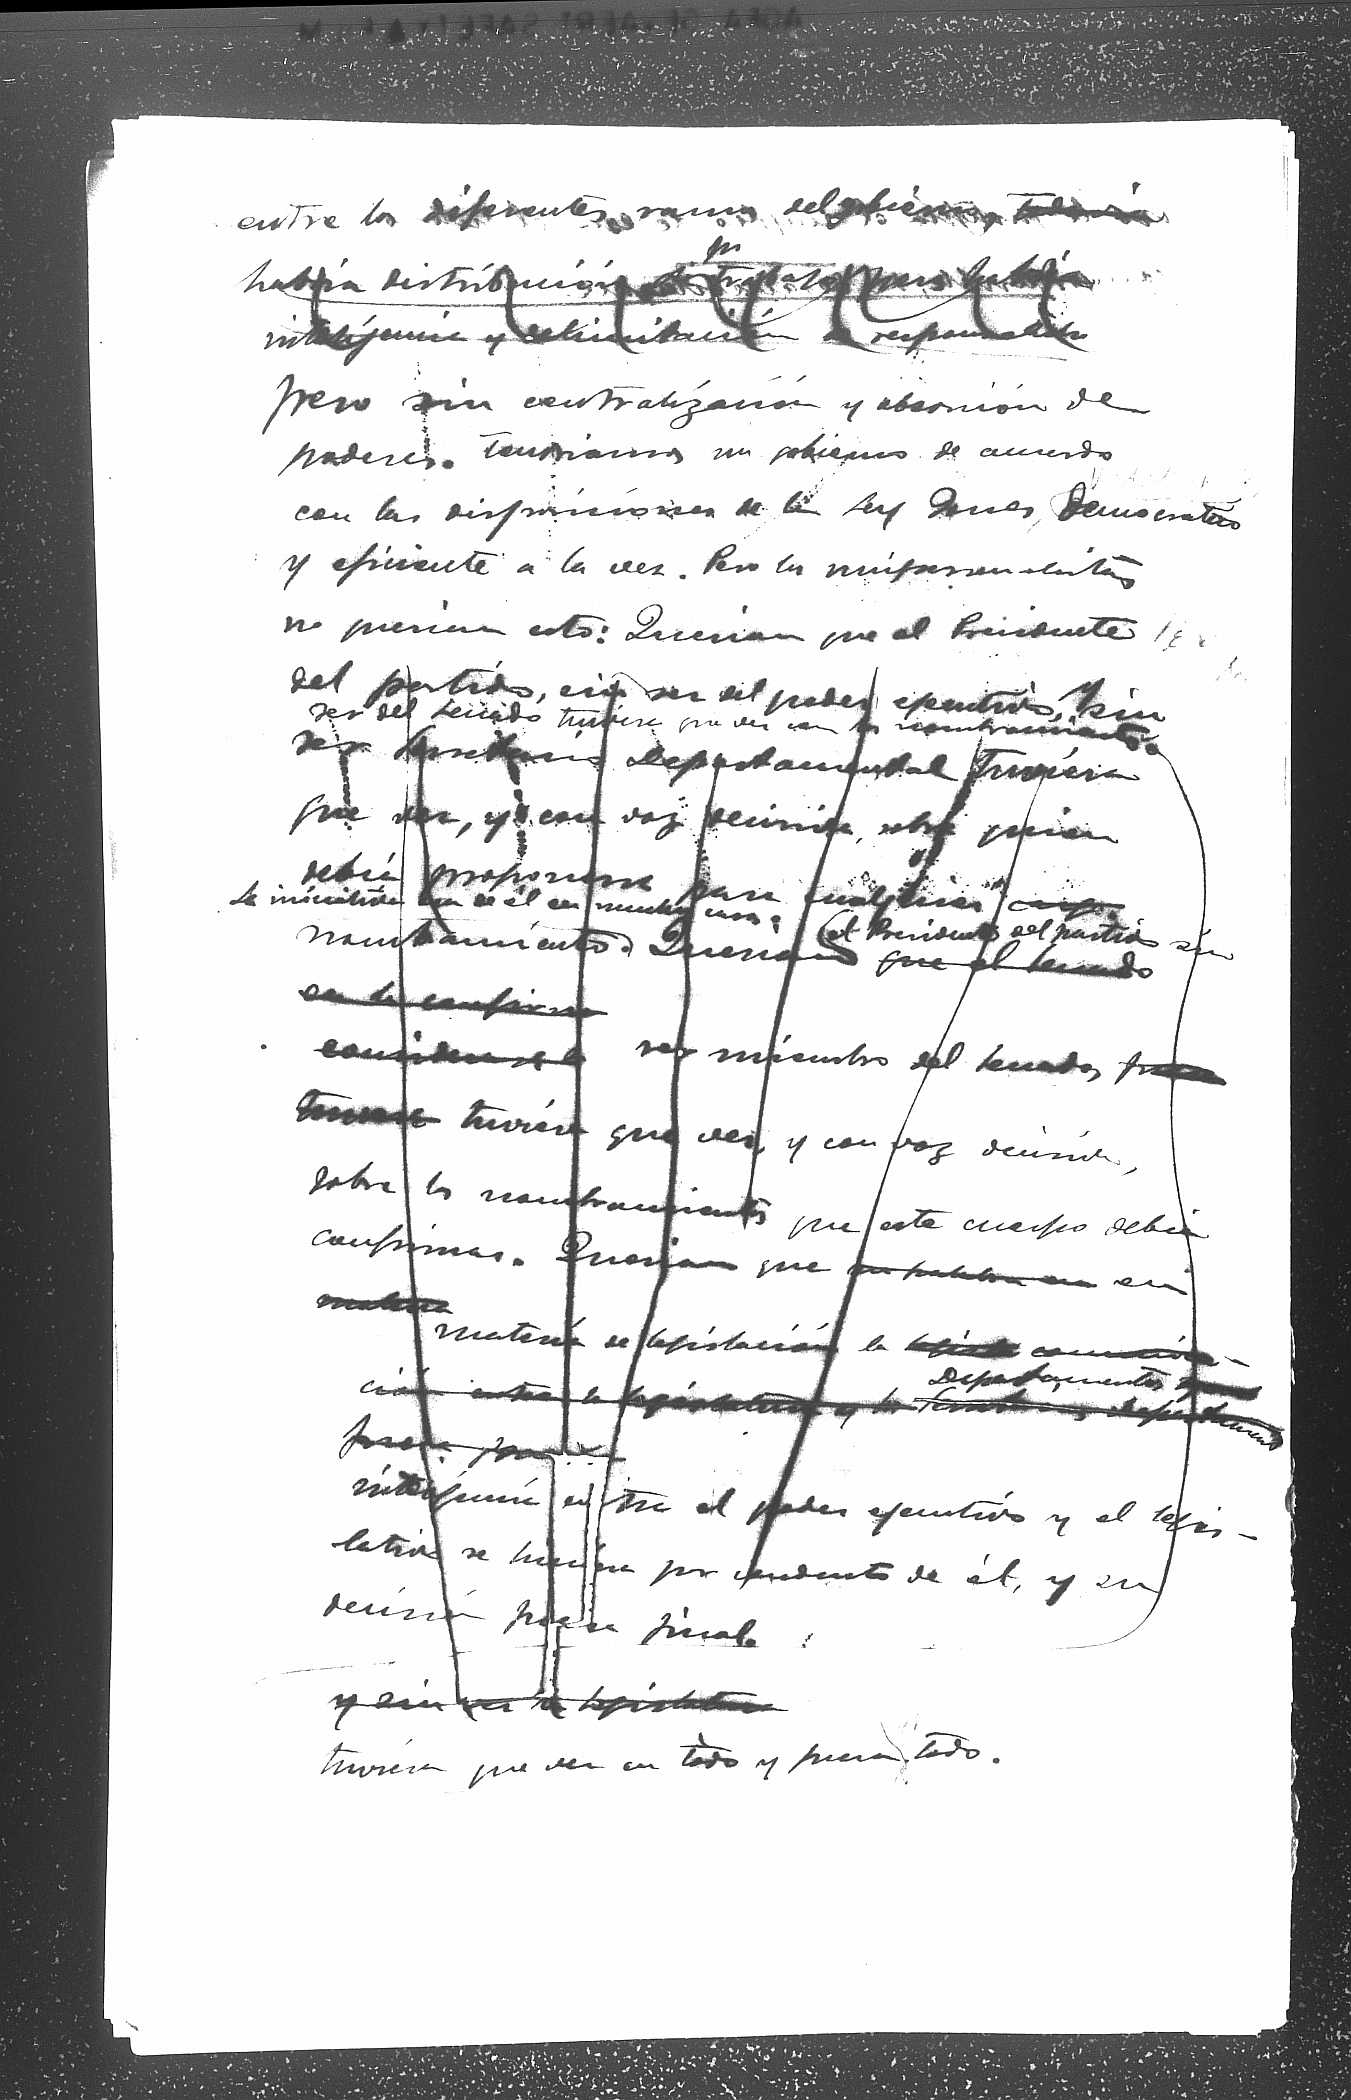 entre los diferentes ramos del gobierno, todavia
habria distribución de trabajo, pero habria
inteligencia y delimitación de responsabilidad
pero sin centralización y absorción de
poderes. Tendriamos un gobierno de acuerdo
con las disposiciones de la Ley Jones, Democratico
y eficiente a la vez. Pero los unipersonalistas
no querian esto: Querian que el Presidente
del partido, sin ser del poder ejecutivo, y sin
ser del Senado tuviera que ver con los nombramientos.
ser Secretario Departamental tuviera
que ver, y con voz decisiva, sobre quien
debia proponerse para cualquier cargo
La iniciativa era de él en muchos casos.
nombramiento. Querian que el Senado
el Presidente del partido sin
en la confirma
considerase la ser miembro del Senado, fuera
tuviese tuviera que ver, y con voz decisiva,
sobre los nombramientos que este cuerpo debia
confirmar. Querian que su palabra en en
materia
materia de legislación, la
Departamentos
ción entre la legislatura y los Secretarios Departamentos
fuera por
inteligencia entre el poder ejecutivo y el legis-
lativo se hiciera por conducto de él, y su
decisión fuera final.
y sin ser la legislatura
tuviera que ver en todo y fuera todo.